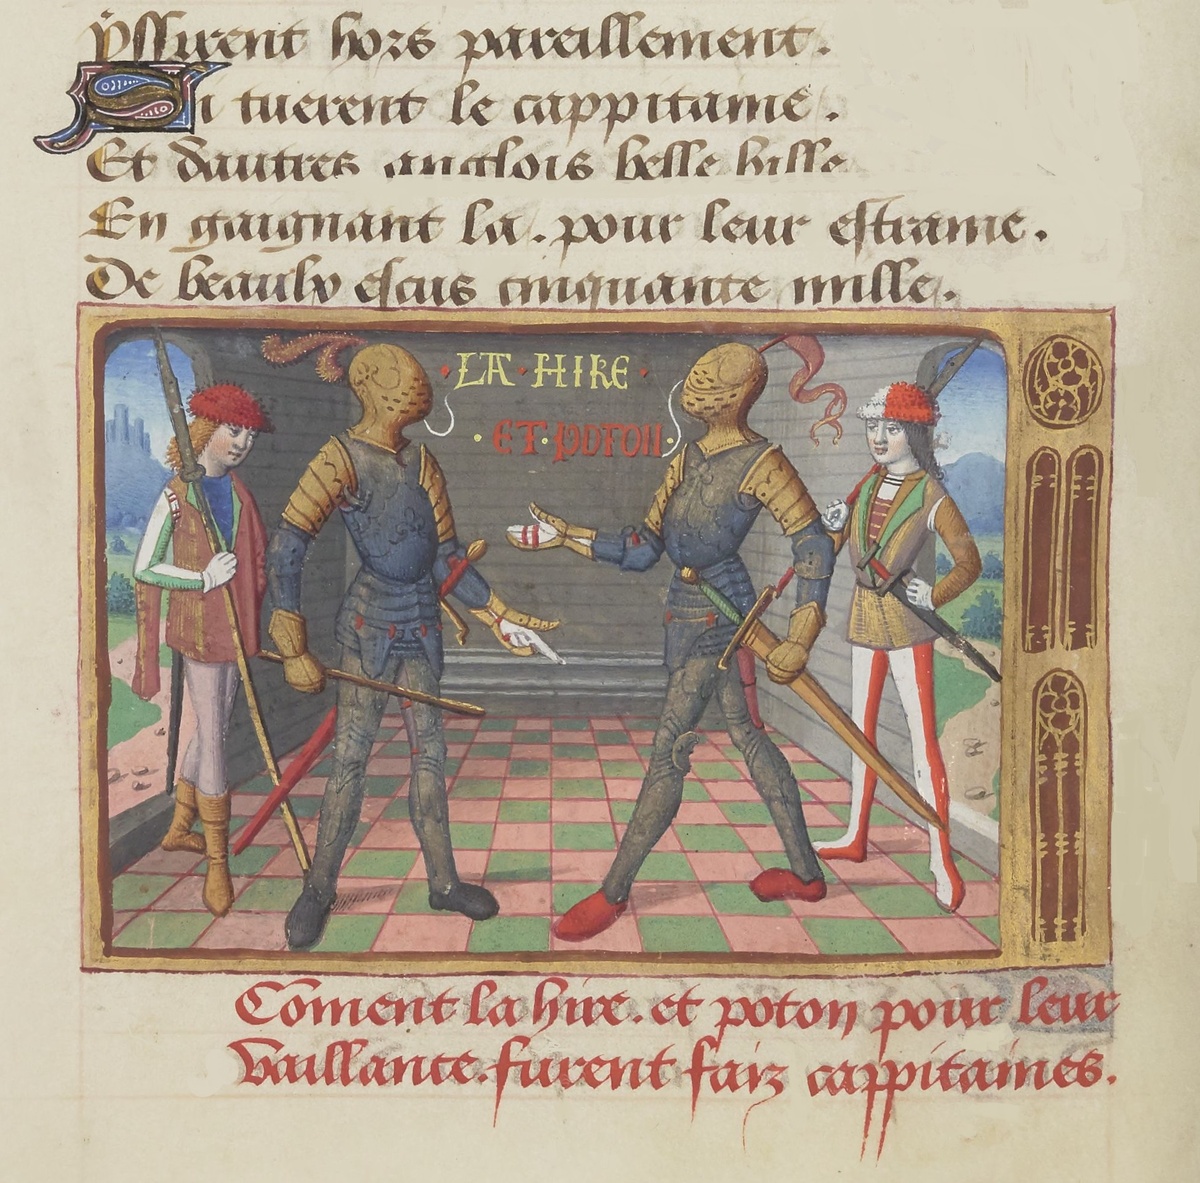 yssirent hors pareillement.
Si tuerent le cappitaine.
Et dautres anglois belle bille
En gaignant la. pour leur estraine.
De beaulx escus cinquante mille.
LA·HIRE·
·ET·POTON·
Coment la hire. et poton pour leur
vaillance. furent faiz cappitaines.